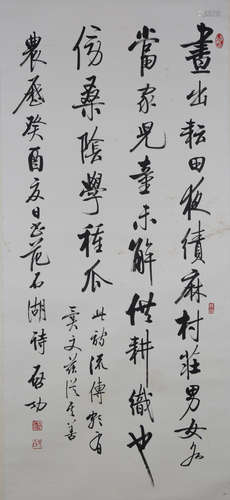 晝出耘田夜績麻村莊男女各
當家兒童未解供耕織也
傍桑陰學種瓜
此詩流傳頗有
異文茲從其善
農曆癸酉夏日書范石湖詩 啟功